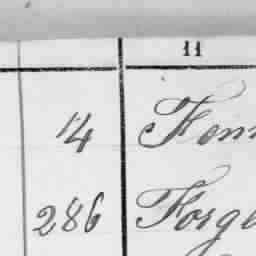 11
14 Fenn
286 Forge